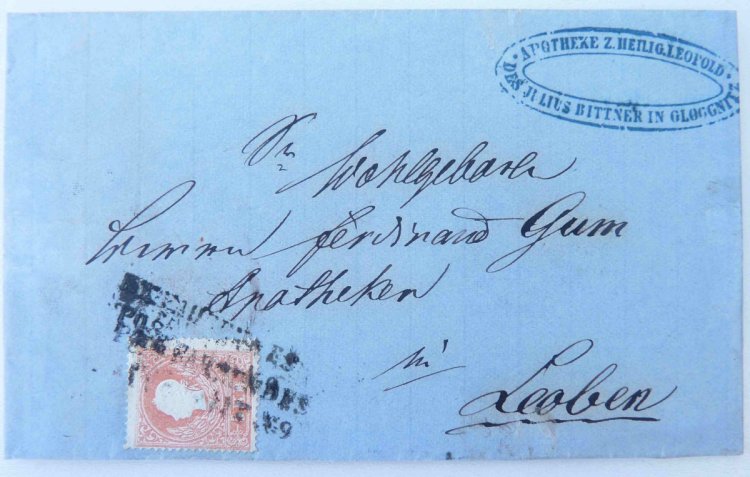 APOTHEKE Z. HEILIG. LEOPOLD
DES JULIUS BITTNER IN GLOGGNITZ
Sr Wohlgeboren
Herrn Ferdinand Gum
Apotheker
in
Leoben